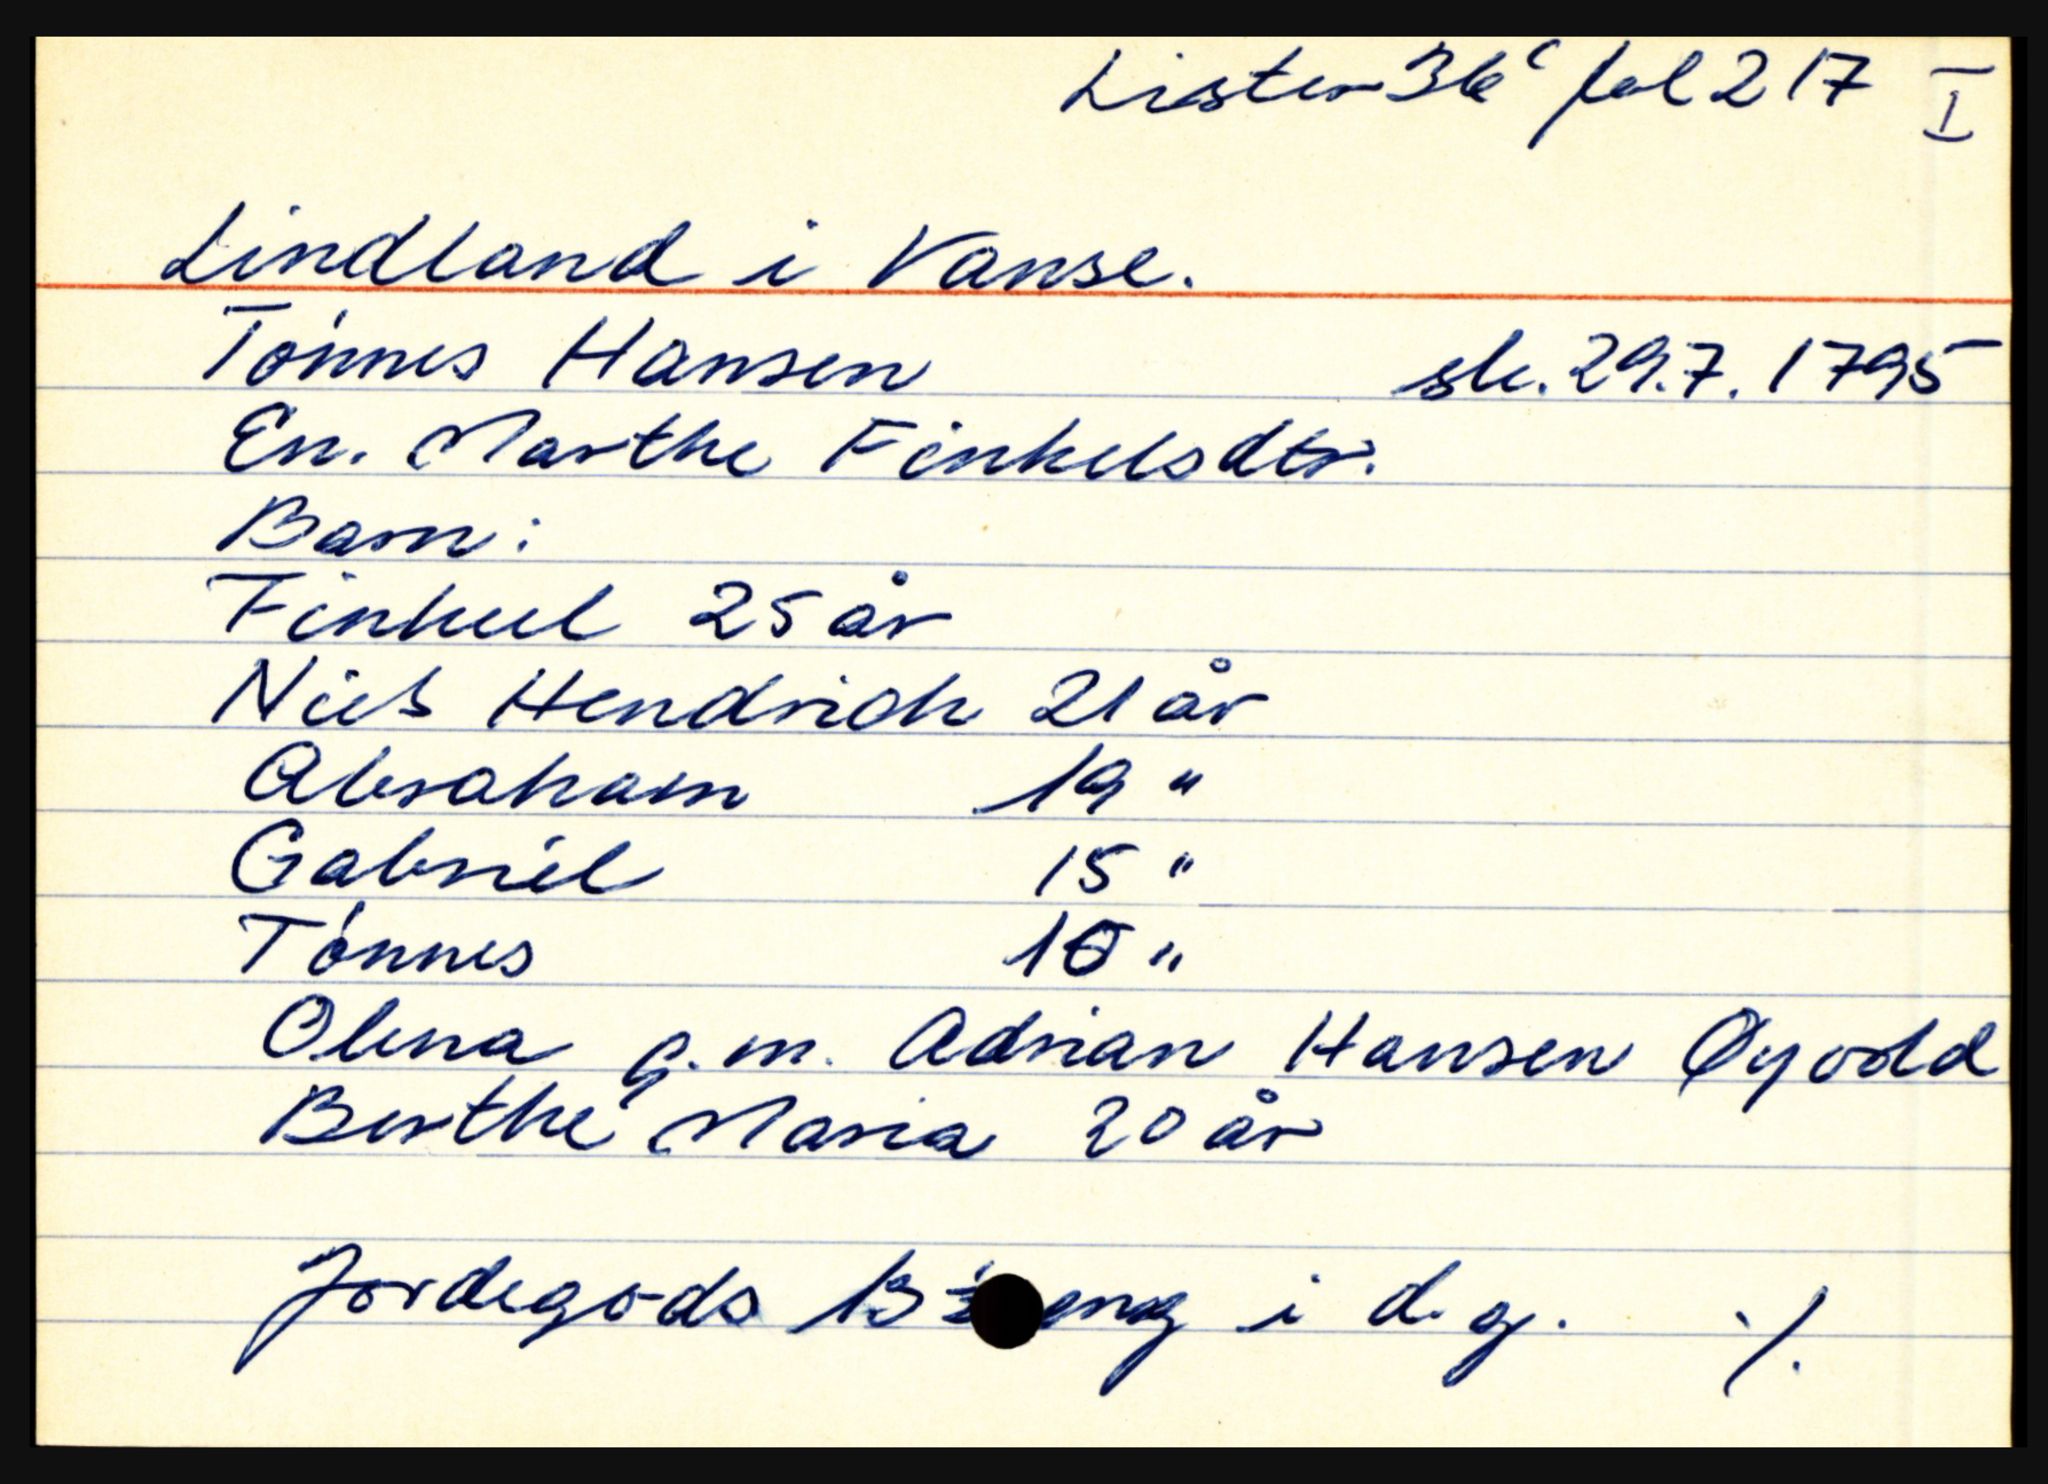 Lister 36c fol 217 I
Lindland i Vanse.
Tónnes Hansen sk. 29.7.1795
En. Marthe Finkelsdtr.
Barn:
Finkel 25 år
Niels Hendrich 21 år
Abraham 19 "
Gabriel 15 "
Tónnes 10 "
Olena g.m. Adrian Hansen Øyodd
Berthe Maria 20 år
Jordegods 13 eng i d.g. ./.